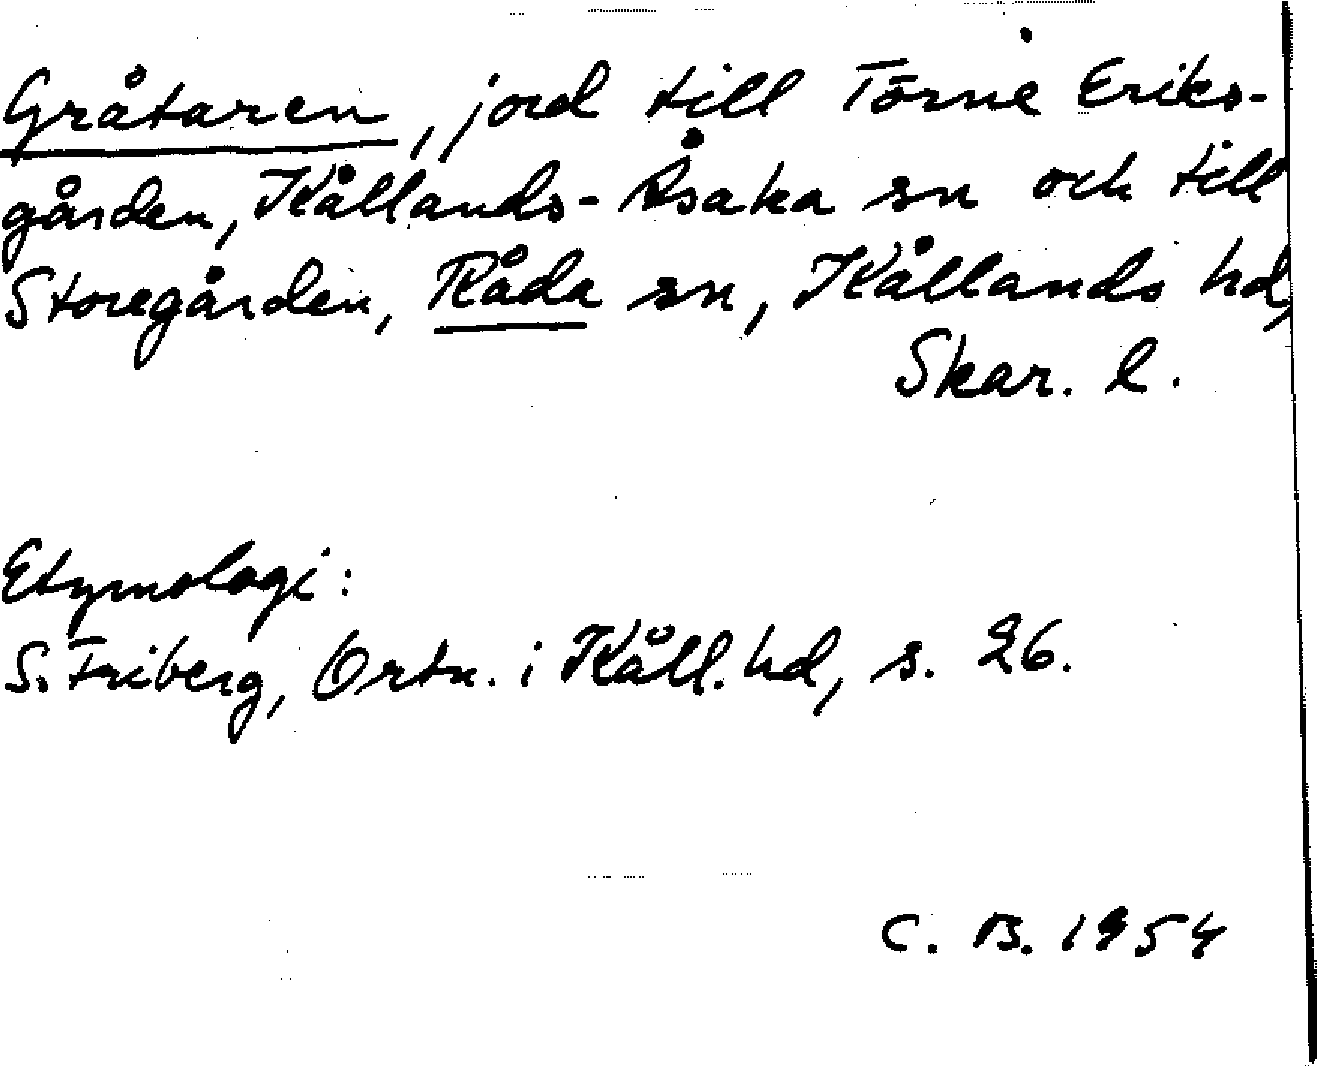 Gråtaren, jord till Törne Eriks-
gården, Kållands-Åsaka sn och till
Storegården, Råda sn, Kållands hd,
Skar. l.
Etymologi:
S. Friberg, Ortn. i Kåll. hd, s. 26.
C. B. 1954